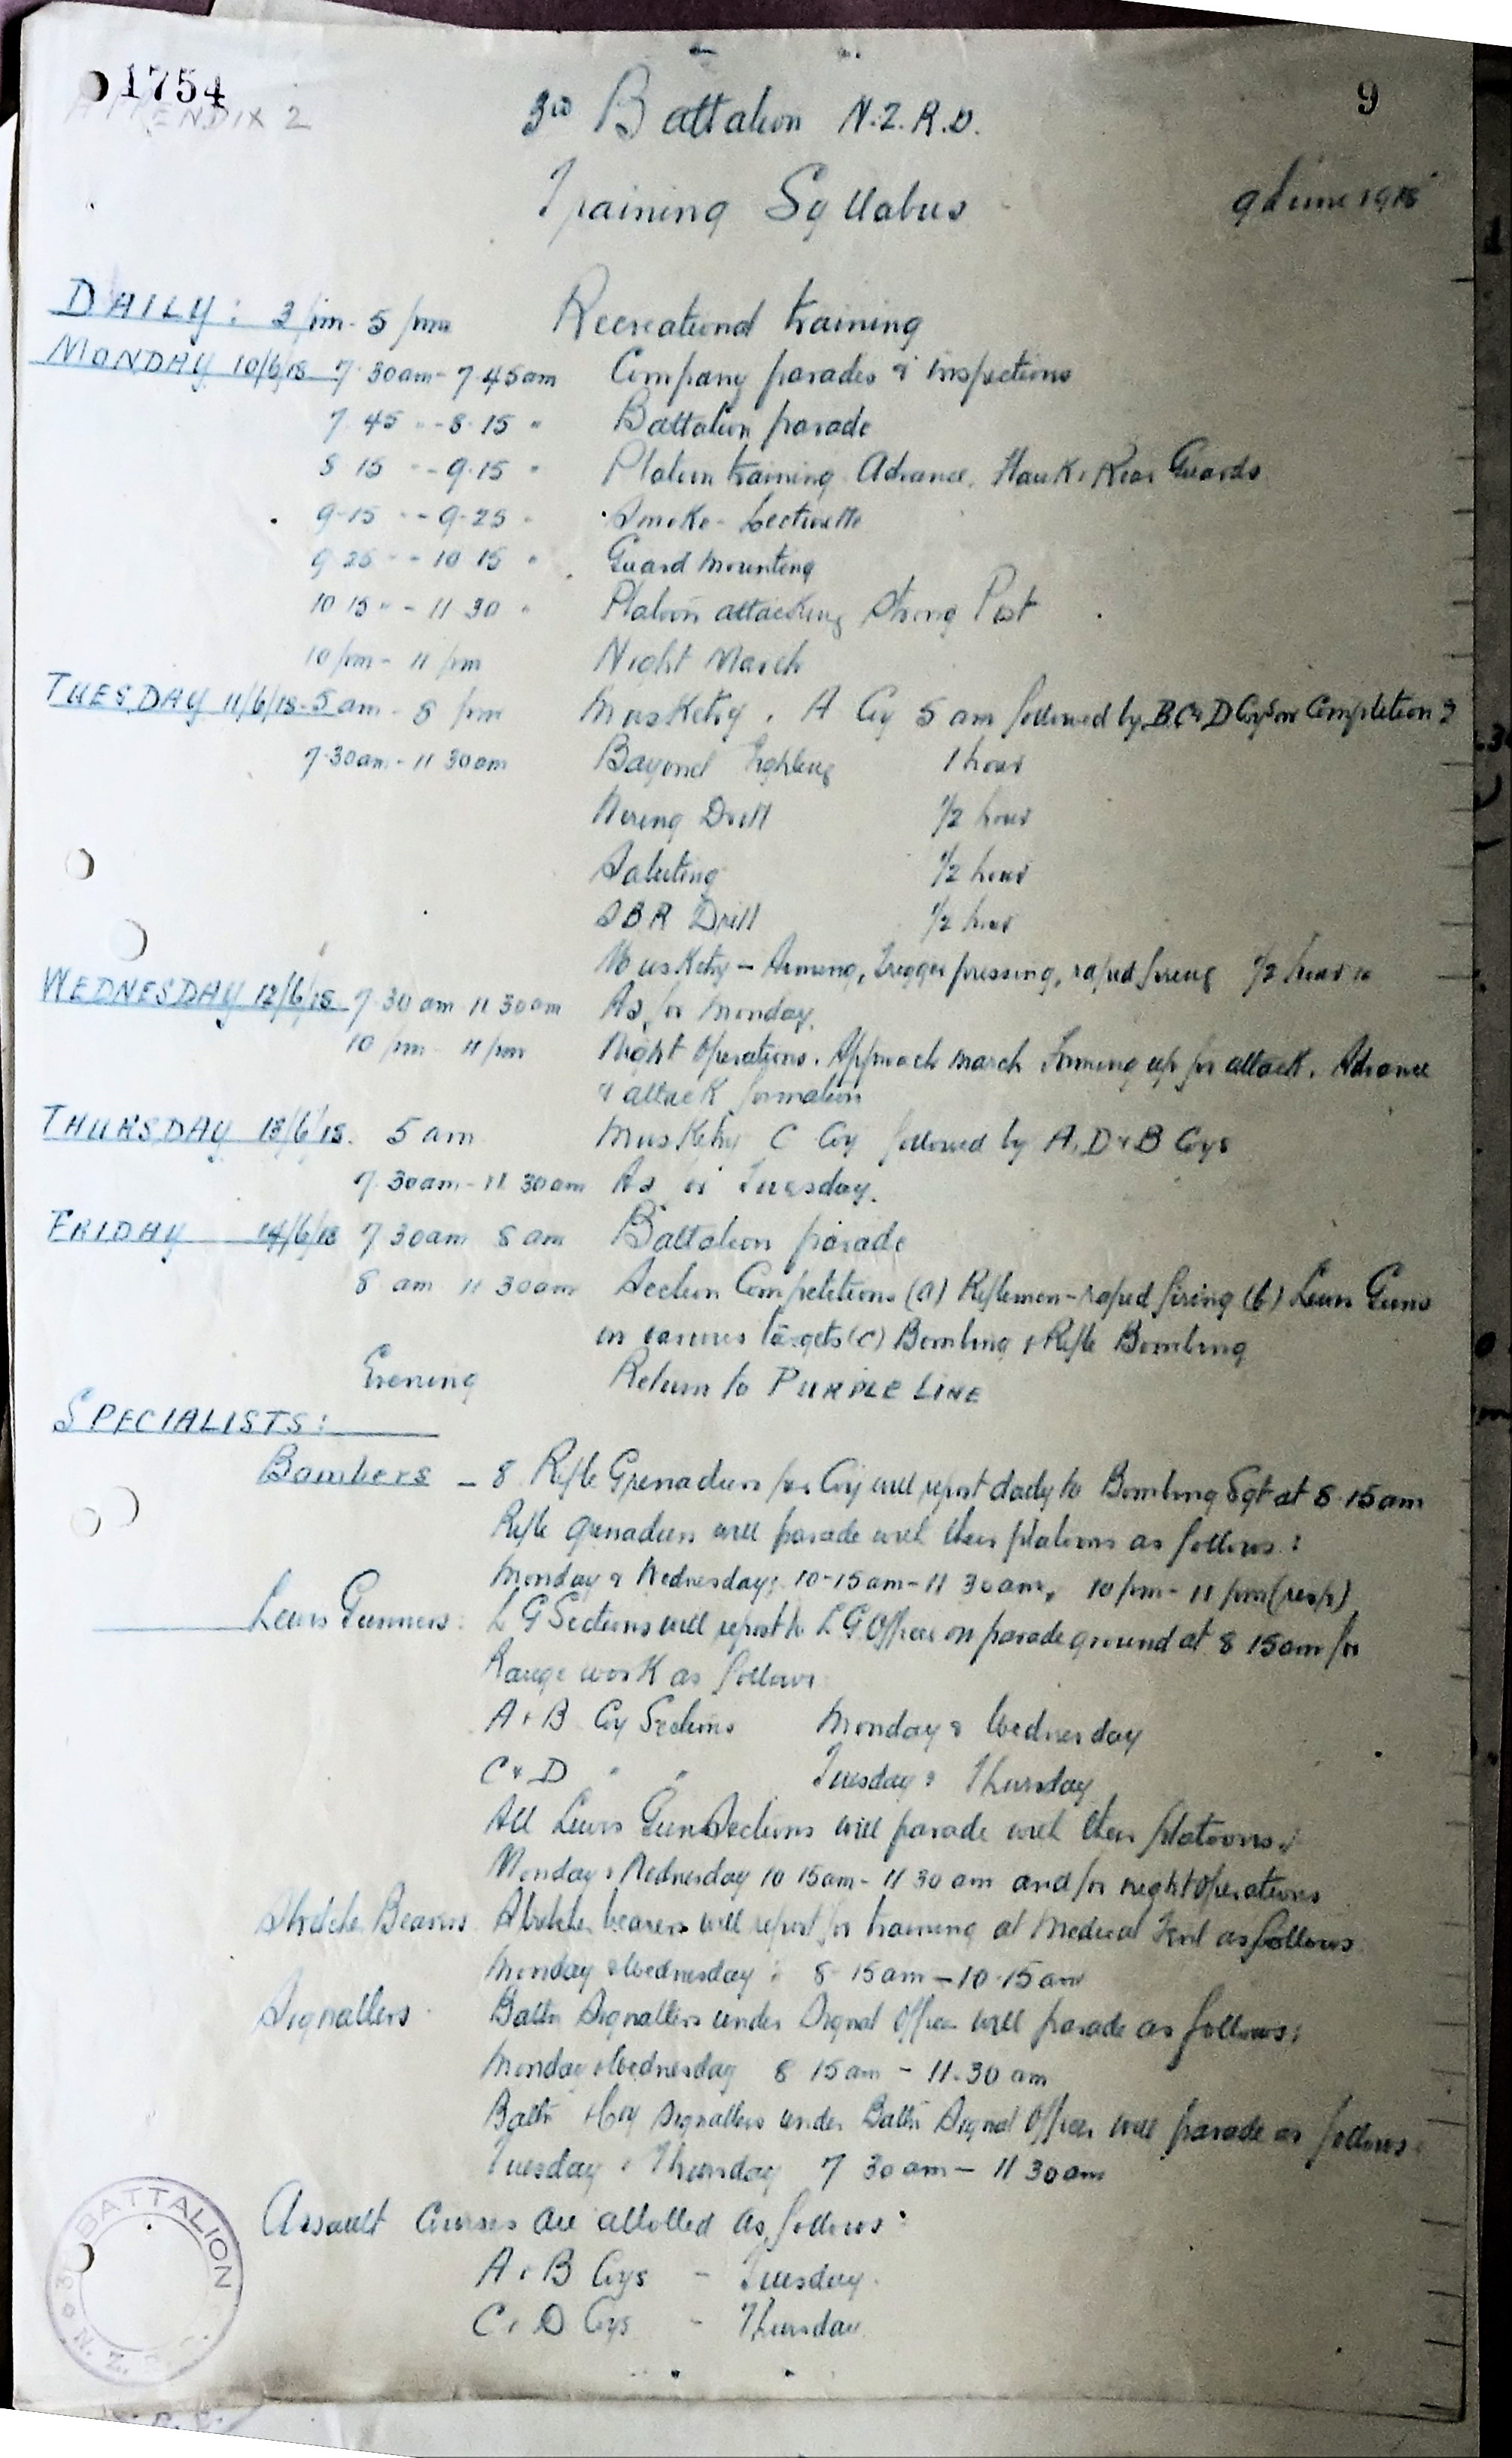 1754
APPENDIX 2
9
3rd Battalion N.Z.R.B.
Training Syllabus
9 June 1918
DAILY: 3 pm - 5 pm Recreational training
MONDAY 10/6/18 7.30am - 7.45am Company parades & inspections
7.45 " - 8.15 " Battalion parade
8 15 " - 9.15 " Platoon training Advance, Flank & Rear Guards
9.15 " - 9.25 " Smoke - Lecturette
9.25 " - 10 15 " Guard mounting
10 15 " - 11.30 " Platoon attacking Strong Post
10 pm - 11 pm Night March
TUESDAY 11/6/18 - 5 am - 8 pm Musketry. A Coy 5 am followed by B C & D Coys on Completion
7.30am - 11 30am Bayonet Fighting 1 hour
Wiring Drill 1/2 hour
Saluting 1/2 hour
SBR Drill 1/2 hour
Musketry - Aiming, Trigger pressing, rapid firing 1/2 hour
WEDNESDAY 12/6/18 7.30 am 11 30am As for Monday.
10 pm - 11 pm Night Operations. Approach march Forming up for attack. Advance
& attack formation
THURSDAY 13/6/18. 5 am Musketry C Coy followed by A, D & B Coys
7.30am - 11 30am As for Tuesday.
FRIDAY 14/6/18 7 30am 8 am Battalion parade
8 am 11 30am Section Competitions (a) Riflemen - rapid firing (b) Lewis Guns
on various targets (c) Bombing & Rifle Bombing
Evening Return to PURPLE LINE
SPECIALISTS:
Bombers - 8 Rifle Grenadiers per Coy will report daily to Bombing Sgt at 8.15am
Rifle grenadiers will parade with their platoons as follows:
Monday & Wednesday: 10-15am - 11 30am, 10 pm - 11 pm (resp)
Lewis Gunners: L G Sections will report to L G Officer on parade ground at 8 15am for
Range work as follows
A & B Coy Sections Monday & Wednesday
C & D " " Tuesday & Thursday
All Lewis Gun Sections will parade with their platoons:
Monday & Wednesday 10 15am - 11 30 am and for night operations
Stretcher Bearers Stretcher bearers will report for training at Medical Tent as follows
Monday & Wednesday: 8 15am - 10.15am
Signallers Battn Signallers under Signal Officer will parade as follows:
Monday & Wednesday 8 15am - 11.30 am
Battn & Coy Signallers under Battn Signal Officer will parade as follows
Tuesday & Thursday 7 30am - 11 30am
Assault Courses are allotted as follows:
A & B Coys - Tuesday.
C & D Coys - Thursday
3rd BATTALION
N.Z.